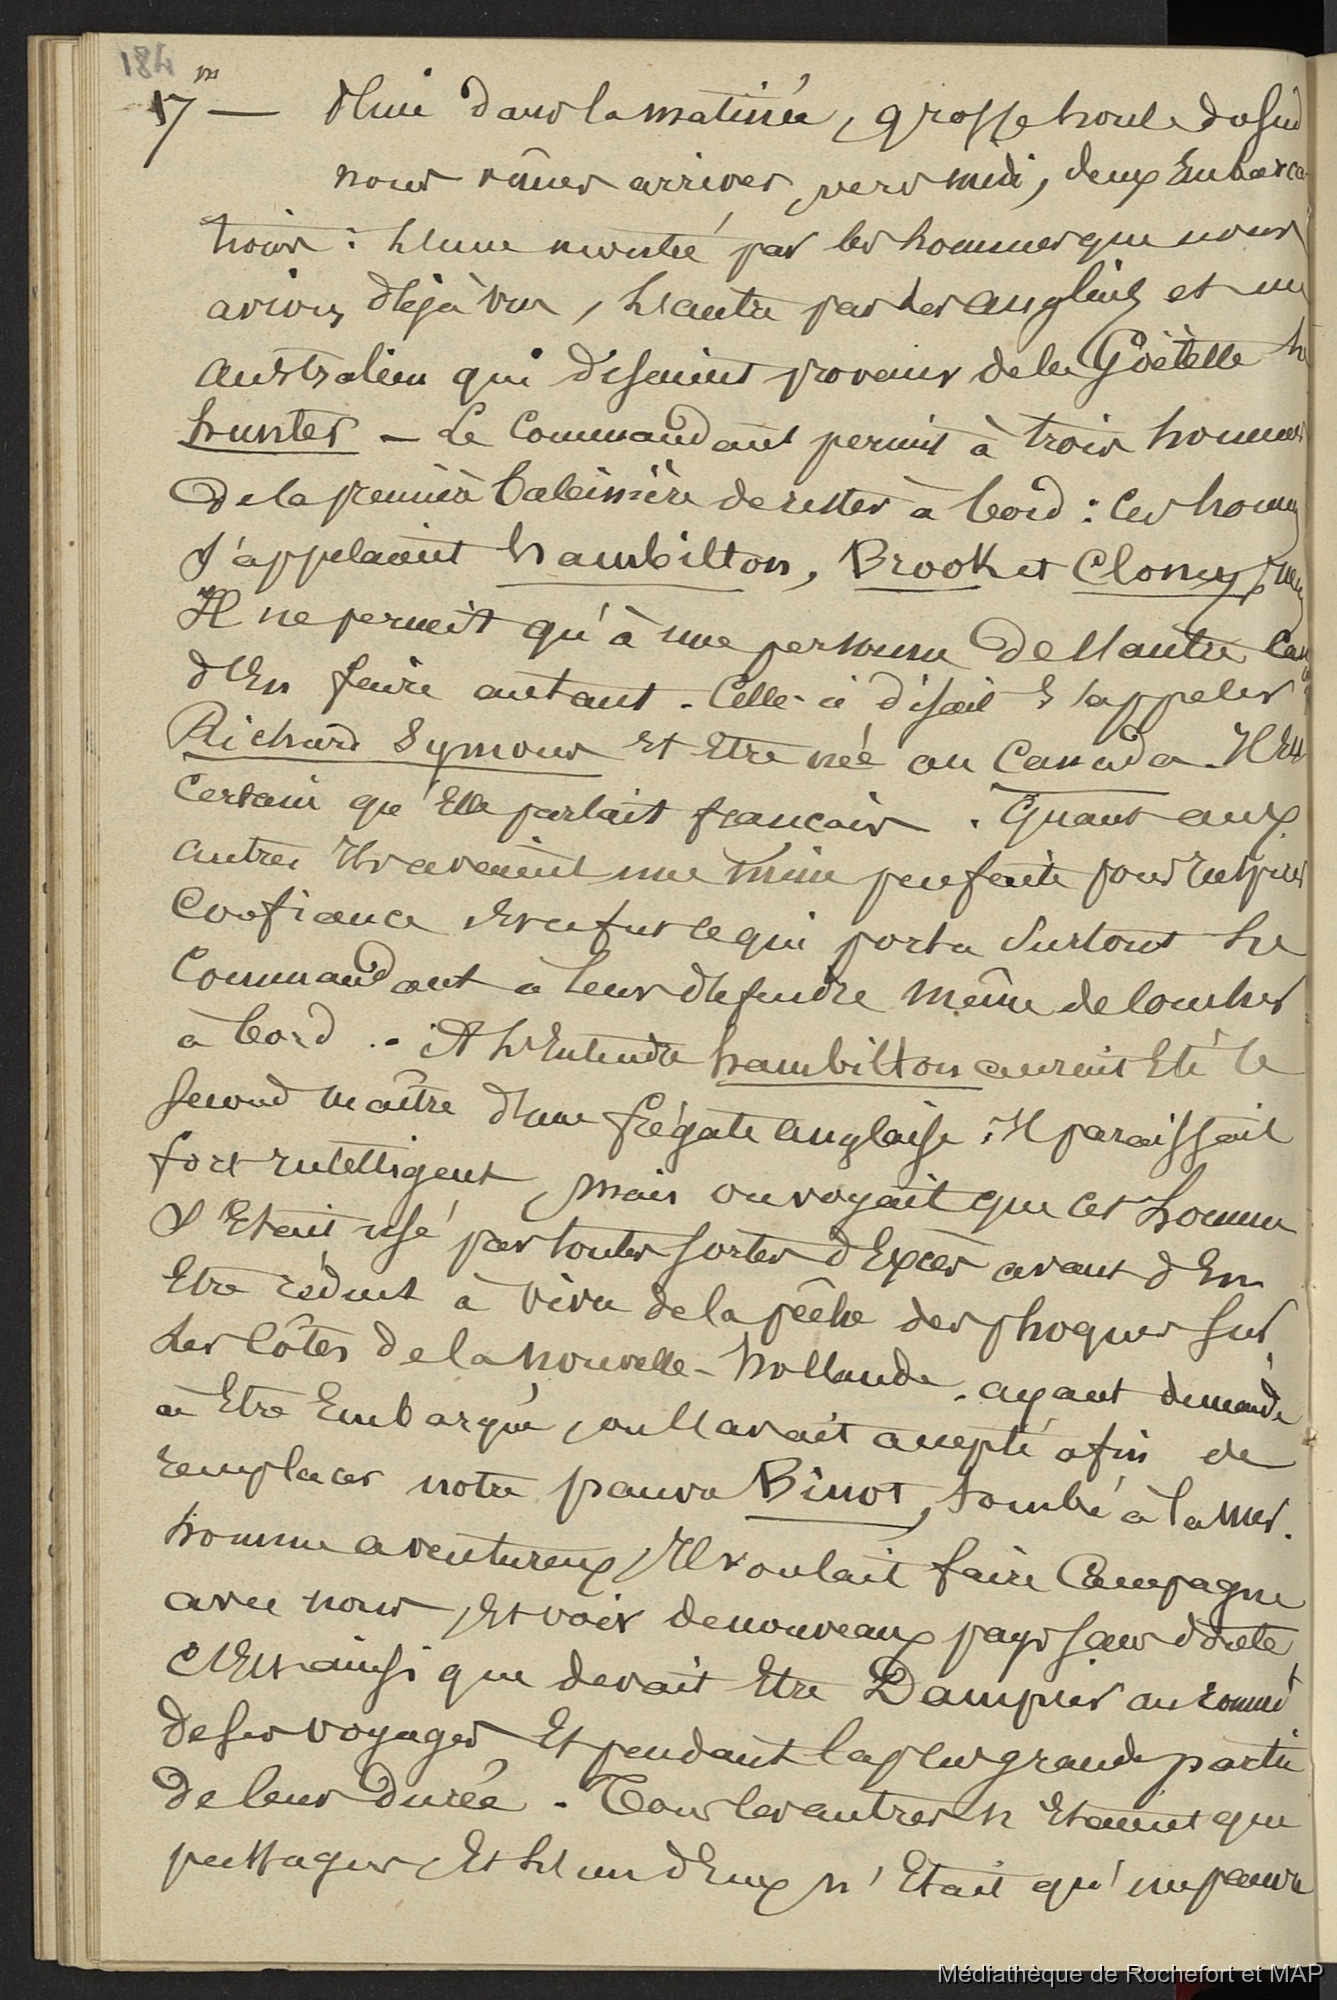 184
17 — Pluie dans la matinée, grosse houle du Sud
nous vîmes arriver, vers midi, deux Embarca
tions : L'une montée par les hommes que nous
avions déjà vus, L'autre par des anglais et un
australien qui disaient provenir de la Goëlette h
hunter — Le Commandant permit à trois hommes
De la première baleinière de rester à bord : Ces hommes
s'appelaient hambilton, Brook et Clony,
Il ne permit qu'à une personne De l'autre
d'En faire autant. Celle-ci disait s'appeler
Richard Symour Et Etre née au Canada. Il Est
Certain qu'Elle parlait français. Quant aux
autres Ils avaient une mine peu faite pour Inspirer
Confiance Et ce fut ce qui porta Surtout Le
Commandant à leur défendre même de coucher
à bord. - A L'Entendre hambilton aurait Eté le
second maître d'une frégate anglaise, Il paraissait
fort Intelligent, mais on voyait que cet homme
s'Etait usé par toutes sortes d'Excès avant d'En
Etre réduit à vivre de la pêche des phoques sur
Les Côtes de la nouvelle-hollande. ayant demandé
à Etre Embarqué, on l'avait accepté afin de
remplacer notre pauvre Binot, tombé à la mer.
homme aventureux, Il voulait faire Campagne
avec nous, Et voir de nouveaux pays sans doute,
C'Est ainsi que devait Etre Dampier au commt
De ses voyages Et pendant la plus grande partie
De leur Durée. Tous les autres n'Etaient que
passagers, Et L'un d'Eux n'Etait qu'un pauvre
Médiathèque de Rochefort et MAP